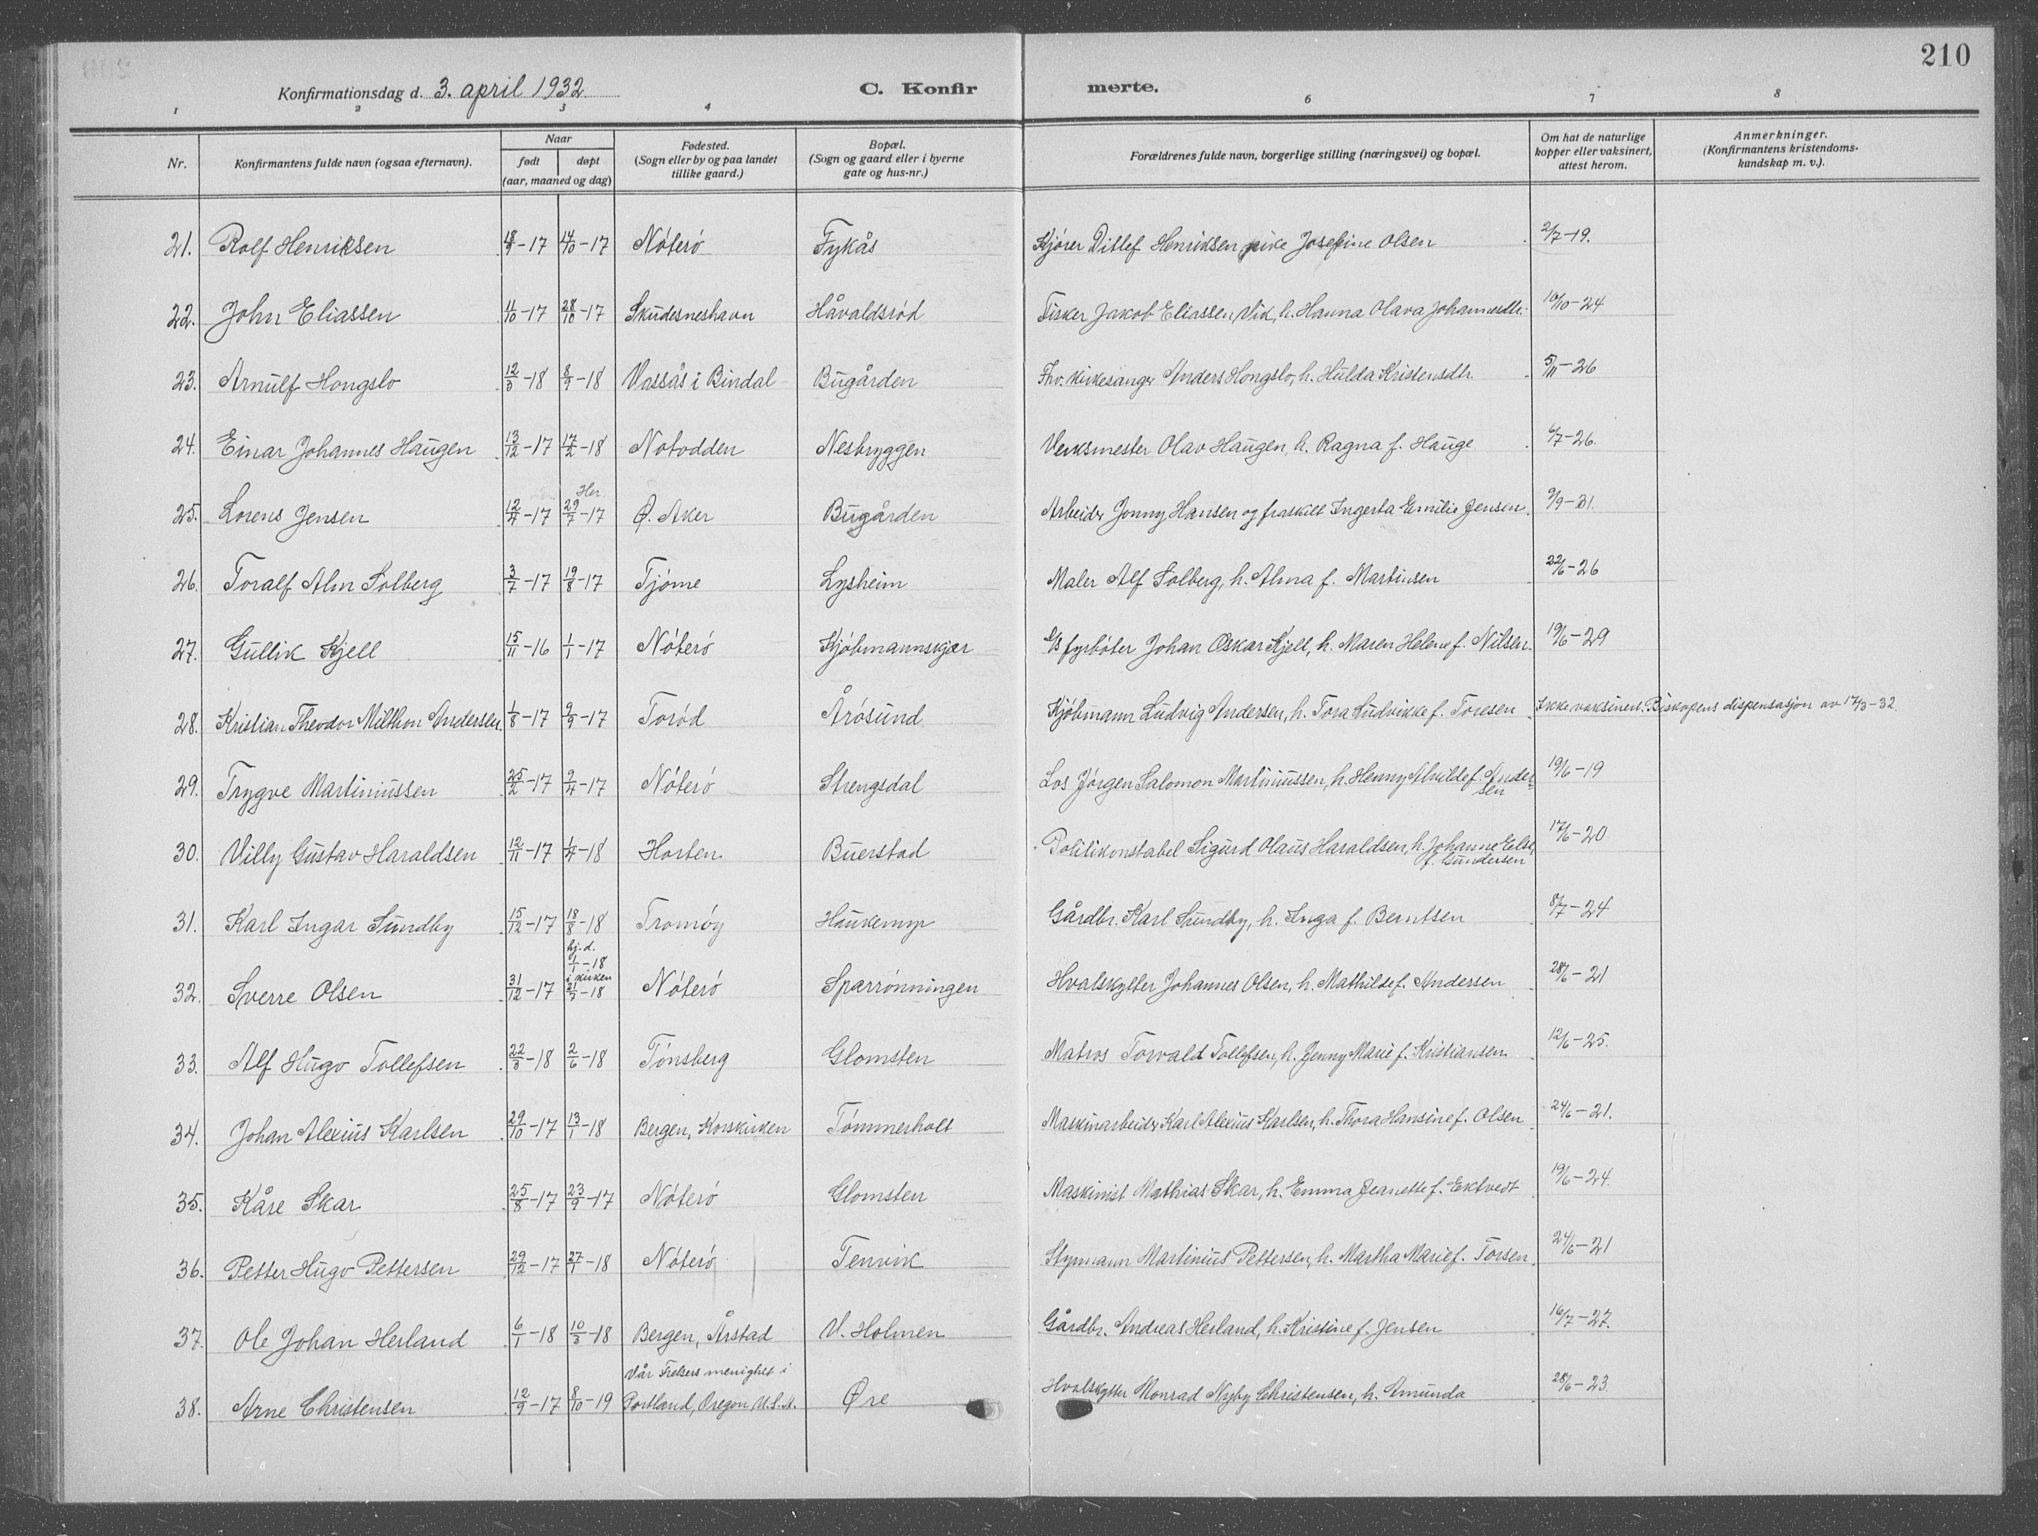 210
Konfirmationsdag d. 3. april 1932 C. Konfir merte.
1 2 3 4 6 7 8
Nr. Konfirmantens fulde navn (ogsaa efternavn). Naar født døpt (aar, maaned og dag) Fødested. (Sogn eller by og paa landet tillike gaard.) Bopæl. (Sogn og gaard eller i byerne gate og hus-nr.) Forældrenes fulde navn, borgerlige stilling (næringsvei) og bopæl. Om hat de naturlige kopper eller vaksinert, attest herom. Anmerkninger. (Konfirmantens kristendoms- kundskap m. v.).
21. Rolf Henriksen 18/9-17 14/10-17 Nøterø Fykås Kjører Ditlef Henriksen, pike Josefine Olsen 2/7-19.
22. John Eliassen 4/10-17 28/10-17 Skudesneshavn Håvaldsrød Fisker Jakob Eliassen, Vid, h. Hanna Olava Johannesdtr. 10/10-24
23. Arnulf Hongslo 12/3-18 8/9-18 Vassås i Bindal Bugården Fhv. kirkesanger Anders Hongslo, h. Hulda Kristensdtr. 5/11-26
24. Einar Johannes Haugen 13/12-17 17/2-18 Notodden Nesbryggen Verksmester Olav Haugen, h. Ragna f. Hauge 6/7-26.
25. Lorens Jensen 12/4-17 Her 29/7-17 Ø. Aker Bugården Arbeider Jonny Hansen og fraskilt Ingerta Emilie Jensen. 9/9-31.
26. Toralf Alm Solberg 3/7-17 19/8-17 Tjøme Lysheim Maler Alf Solberg, h. Alma f. Martinsen 22/6-26
27. Gullik Kjell 15/11-16 1/1-17 Nøterø Kjøbmannskjær fyrbøter Johan Oskar Kjell, h. Maren Helene f. Nilsen. 19/6-29
28. Kristian Theodor Milthon Andersen 1/8-17 9/9-17 Torød Årøsund Kjøbmann Ludvig Andersen, h. Tora Ludvikke f. Toresen Ikke vaksinert. Biskopens dispensasjon av 17/3-32.
29. Trygve Martiniussen 25/2-17 9/4-17 Nøterø Strengsdal Los Jørgen Salomon Martiniussen, h. Henny Alvilde f. Ander-
sen 19/6-19
30. Villy Gustav Haraldsen 12/11-17 1/4-18 Horten Buerstad Politikonstabel Sigurd Olaus Haraldsen, h. Johanne Else
f. Gundersen 17/6-20
31. Karl Ingar Sundby 15/12-17 18/8-18 Tromøy Haukemyr Gårdbr. Karl Sundby, h. Inga f. Berntsen 8/7-24
32. Sverre Olsen 31/12-17 hj. d. 9/1-18 i kirken 21/5-18 Nøterø Sparrønningen Hvalskytter Johannes Olsen, h. Mathilde f. Andersen 28/6-21
33. Alf Hugo Tollefsen 22/3-18 2/6-18 Tønsberg Glomsten Matros Torvald Tollefsen, h. Jenny Marie f. Kristiansen 12/6-25.
34. Johan Alexius Karlsen 29/10-17 13/1-18 Bergen, Korskirken Tømmerholt Maskinarbeider Karl Alexius Karlsen, h. Thora Hansine f. Olsen 24/6-21.
35. Kåre Skar 25/8-17 23/9-17 Nøterø Glomsten Maskinist Mathias Skar, h. Emma Jeanette f. Ektvedt 19/6-24.
36. Petter Hugo Pettersen 29/12-17 27/1-18 Nøterø Tenvik Styrmann Martinius Pettersen, h. Martha Marie f. Torsen 24/6-21
37. Ole Johan Herland 6/1-18 10/3-18 Bergen, Årstad V. Holmen Gårdbr. Andreas Herland, h. Kristine f. Jensen 16/7-27.
38. Arne Christensen 12/9-17 8/10-19 Vår Frelsers menighet i
Portland, Oregon U.S.A. Øre Hvalskytter Monrad Nyby Christensen, h. Amunda 28/6-23.